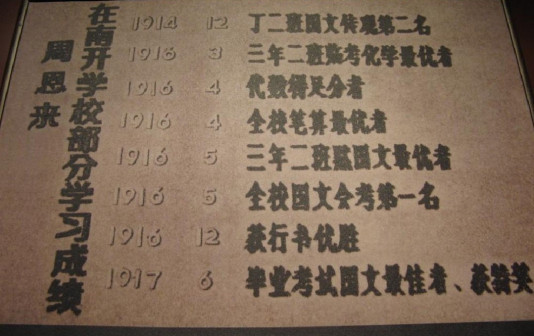 周恩来
在南开学校部分学习成绩
1914 12 丁二班国文传观第二名
1916 3 三年二班临考化学最优者
1916 4 代数得足分者
1916 4 全校笔算最优者
1916 5 三年二班国文最优者
1916 5 全校国文会考第一名
1916 12 获行书优胜
1917 6 毕业考试国文最佳者、获特奖